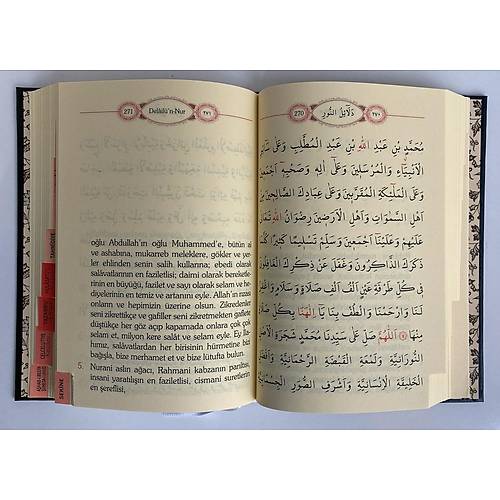 ٢٧٠
دَلَٓائِلُ النُّورِ
270
مُحَمَّدِ بْنِ عَبْدِ اللّٰهِ بْنِ عَبْدِ الْمُطَّلِبِ وَعَلٰى
الْاَنْبِيَٓاءِ وَالْمُرْسَلٖينَ وَعَلٰٓى اٰلِهٖ وَصَحْبِهٖٓ اَجْمَعٖينَ
وَعَلَى الْمَلٰٓئِكَةِ الْمُقَرَّبٖينَ وَعَلٰى عِبَادِكَ الصَّالِحٖينَ مِنْ
اَهْلِ السَّمٰوَاتِ وَاَهْلِ الْاَرَضٖينَ رِضْوَانُ اللّٰهِ تَعَالٰى
عَلَيْهِمْ وَعَلَيْنَٓا اَجْمَعٖينَ وَسَلِّمْ تَسْلٖيمًا كَثٖيرًا كُلَّمَا
ذَكَرَكَ الذَّاكِرُونَ وَغَفَلَ عَنْ ذِكْرِكَ الْغَافِلُونَ
فٖى كُلِّ طَرْفَةِ عَيْنٍ اَلْفَ اَلْفِ صَلَاةٍ وَسَلَامٍ وَاغْفِرْ
لَنَا وَارْحَمْنَا وَالْطُفْ بِنَا يَٓا اِلٰهَنَا بِكُلِّ صَلَاةٍ
مِنْهَا اَللّٰهُمَّ صَلِّ عَلٰى سَيِّدِنَا مُحَمَّدٍ شَجَرَةِ الْاَصْلِ
النُّورَانِيَّةِ وَلَمْعَةِ الْقَبْضَةِ الرَّحْمَانِيَّةِ وَاَفْضَلِ
الْخَلٖيقَةِ الْاِنْسَانِيَّةِ وَاَشْرَفِ الصُّوَرِ الْجِسْمَانِيَّةِ
271
Delâilü'n-Nur
٢٧١
oğlu Abdullah'ın oğlu Muhammed'e, bütün
ve ashabına, mukarreb meleklere, gökler ve yer-
ler ehlinden senin salih kullarına; ebedi olarak
salâvatlarının en faziletlisi; daimi olarak bereketle-
rinin en büyüğü, fazilet ve sayı olarak selam ve he-
diyelerinin en temiz ve artanını eyle. Allah'ın rızası
onların ve hepimizin üzerine olsun. Zikredenler
seni zikrettikçe ve gafiller seni zikretmekten gaflete
düştükçe her göz açıp kapamada onlara çok çok
selam et, milyon kere salât ve selam eyle. Ey İla-
hımız, salâvatlardan her birisinin hürmetine bizi
bağışla, bize merhamet et ve bize lütufta bulun.
5. Nurani aslın ağacı, Rahmani kabzanın parıltısı,
insani yaratılışın en faziletlisi, cismani suretlerin
en şereflisi,
TAHMİDİYE
SEKİNE